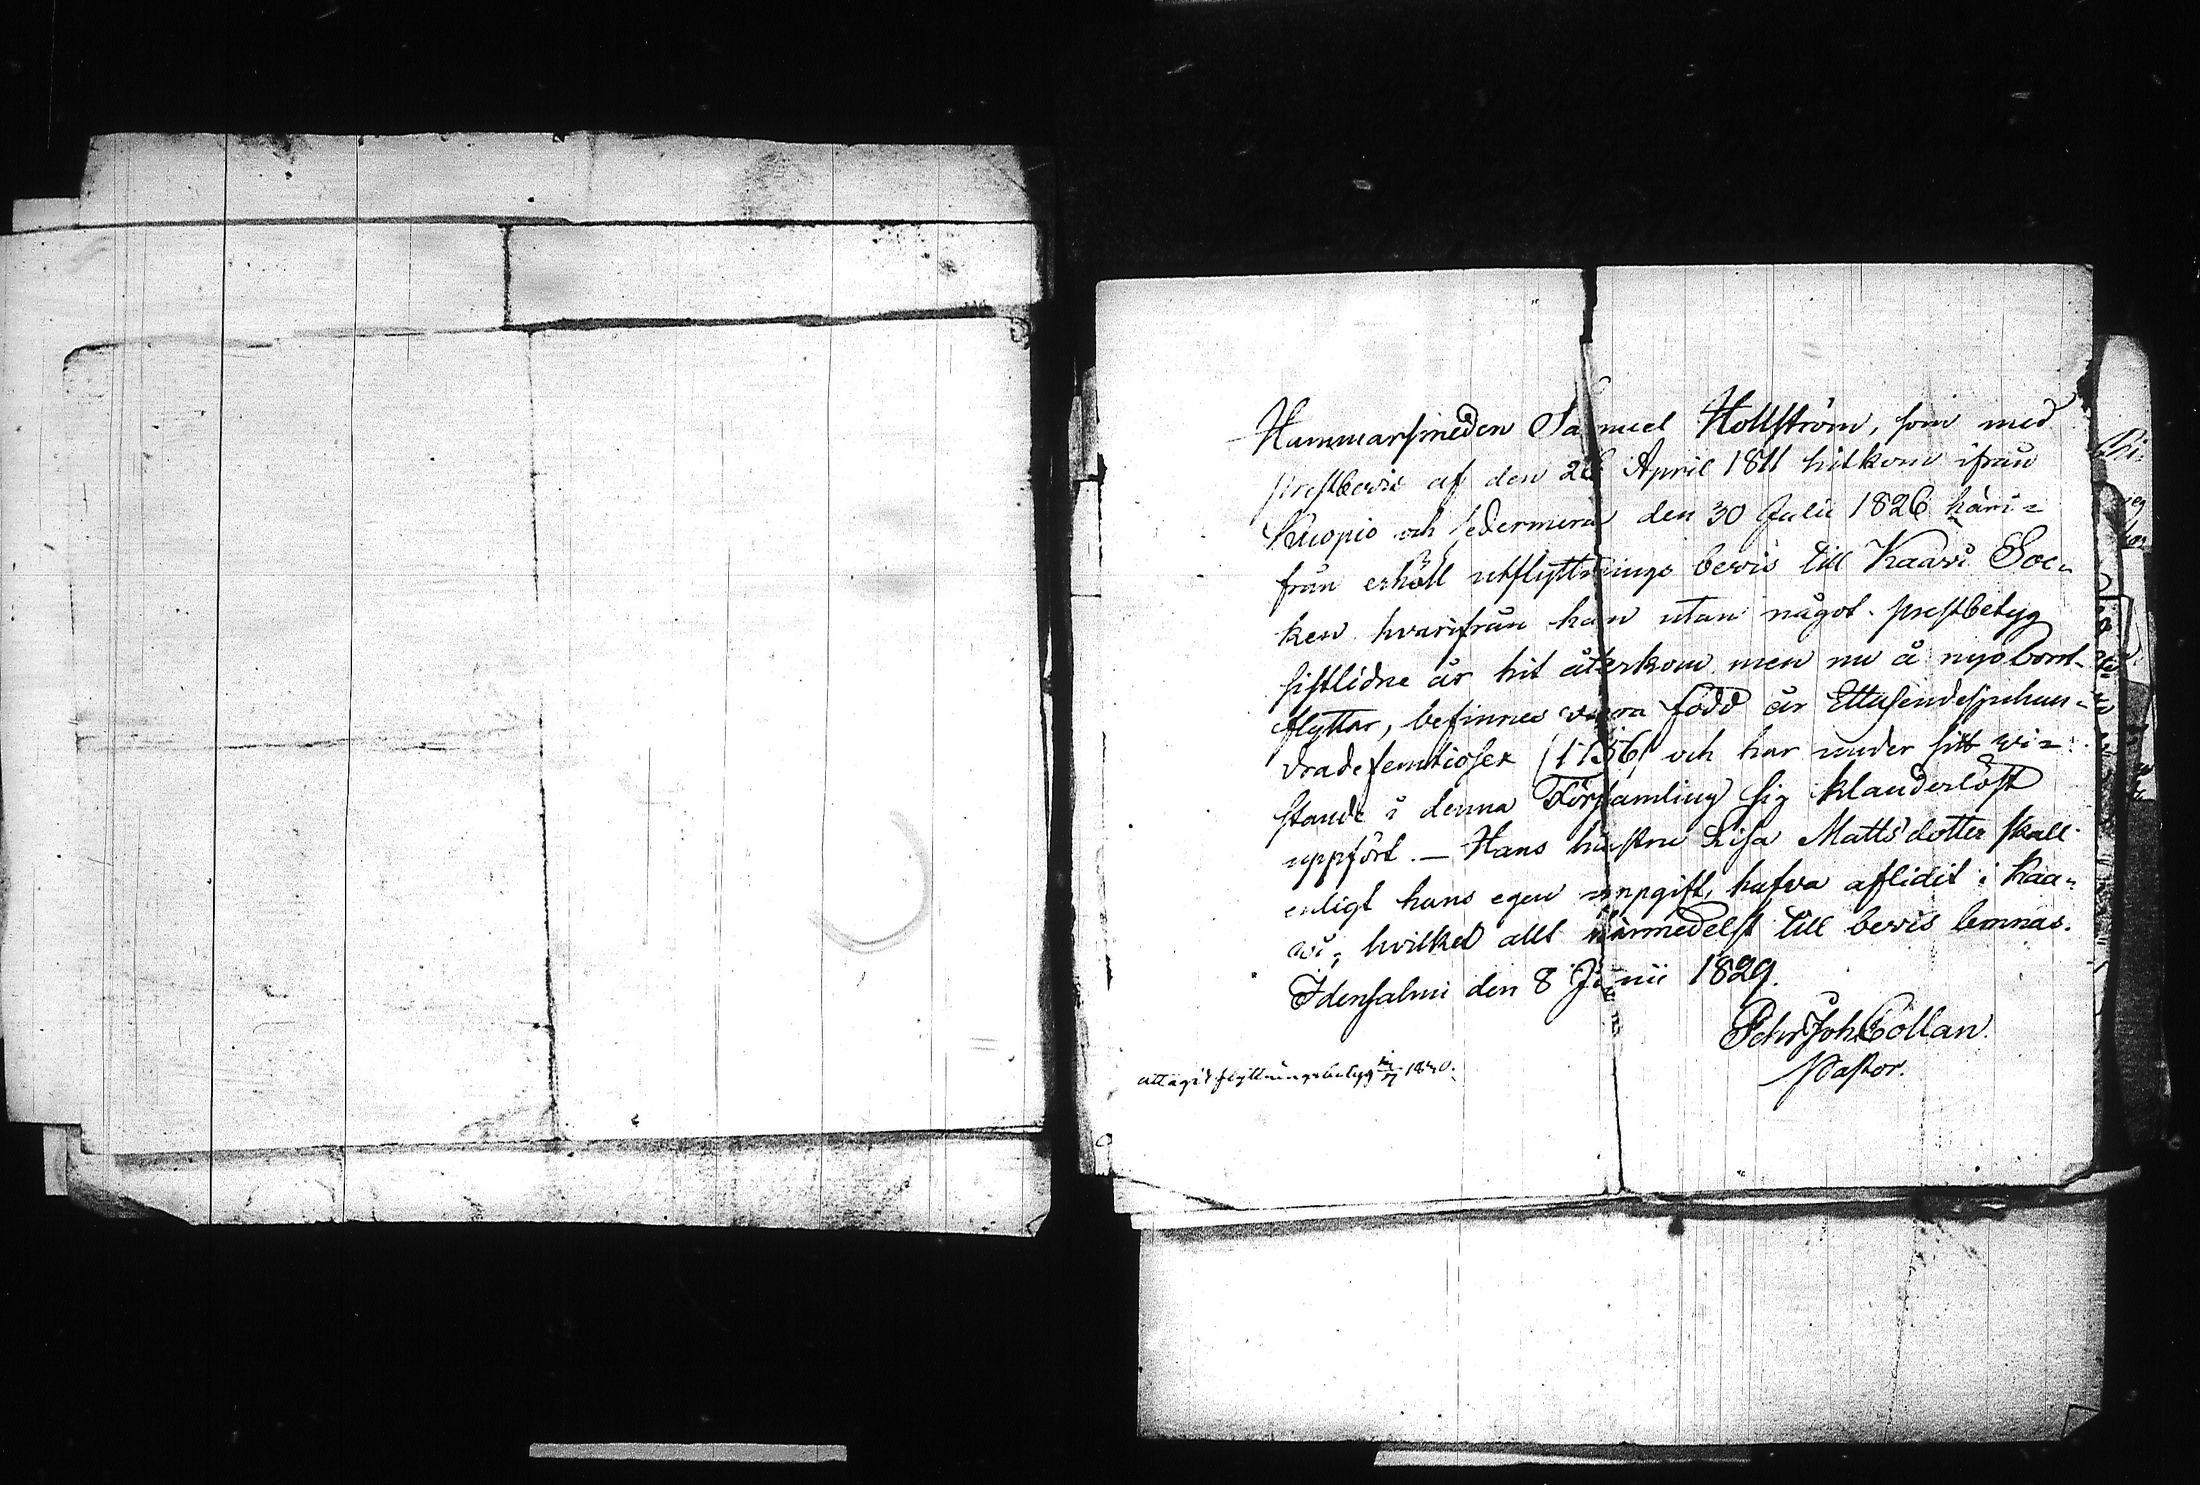 Hammarsmeden Samuel Hollström, som med
prestbevis af den 26 April 1811 hitkom ifrån
Kuopio och sedermera den 30 Julii 1826 häri=
från erhöll utflyttnings bevis till Kaavi Soc=
ken hvarifrån han utan något prestbetyg
sistlidne år hit återkom men nu å nyo bort=
flyttar, befinnes vara född år Ettusendesjuhun=
dradefemtiosex (1756) och har under sitt vi=
stande i denna Församling sig klanderlöst
uppfört. — Hans hustru Lisa Mattsdotter skall
enligt hans egen uppgift, hafva aflidit i Kaa=
vi, hvilket allt härmedelst till bevis lemnas.
Idensalmi den 8 Junii 1829.
Pehr Joh Collan.
Pastor.
uttagit flyttningsbetyg 1830.